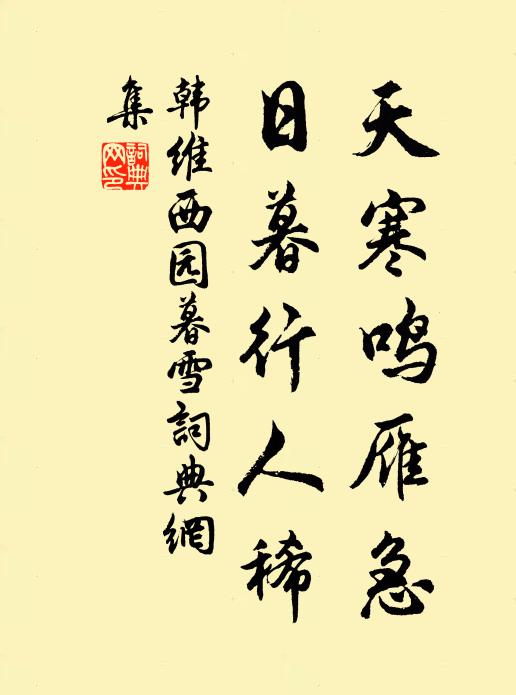 天寒鸣雁急
日暮行人稀
韩维西园暮雪詞典網
集
詞典网印